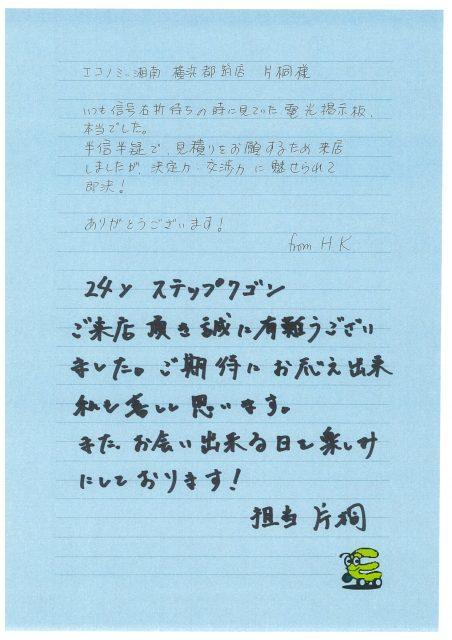 エコノミー湘南 横浜都筑店 片桐様
いつも信号右折待ちの時に見ていた、電光掲示板、
本当でした。
半信半疑で、見積りをお願するため来店
しましたが、決定力・交渉力に魅せられて
即決!
ありがとうございます!
from H K
24y ステップワゴン
ご来店頂き誠に有難うござい
ました。ご期待にお応え出来
私も喜しく思います。
また、お会い出来る日を楽しみ
にしております!
担当 片桐